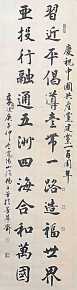 慶祝中國共產黨建黨一百周年
習近平倡導壹帶一路造福世界
亞投行融通五洲四海合和萬國